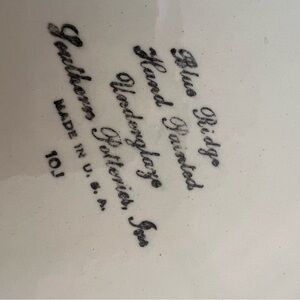 Blue Ridge
Hand Painted
Underglaze
Southern Potteries, Inc
MADE IN U.S.A.
10J